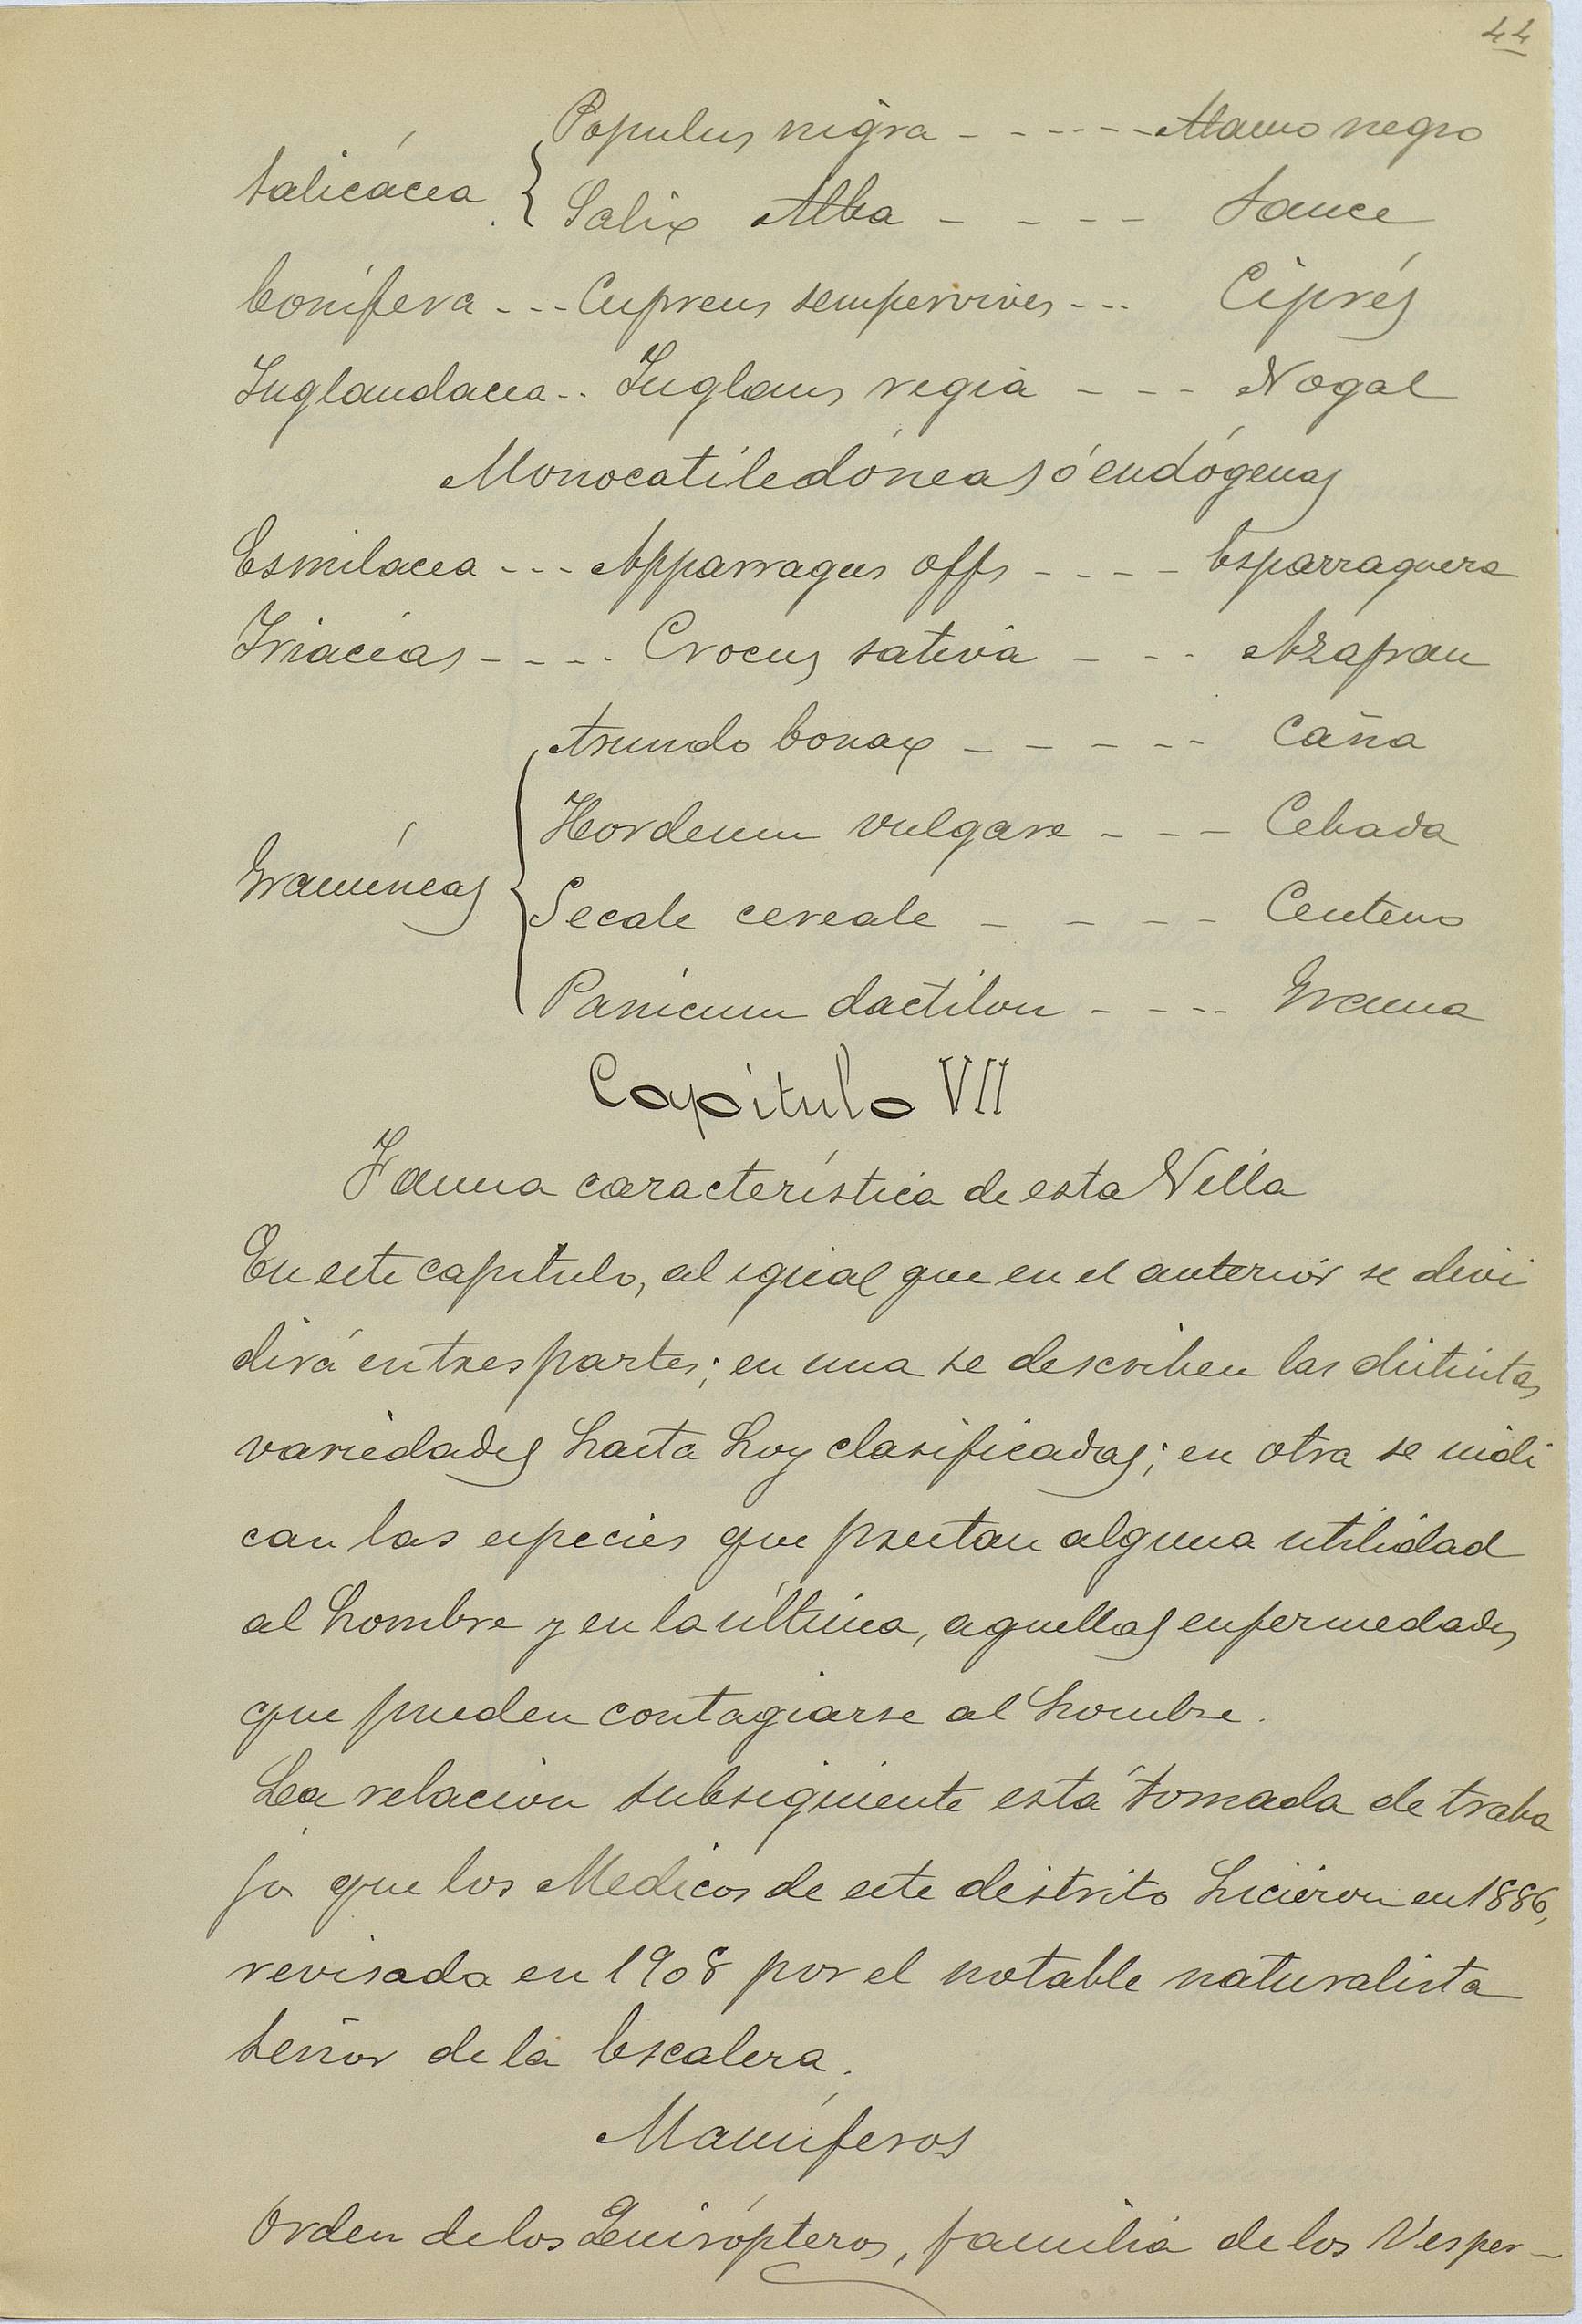 44
Populus nigra - - - - - - Alamo negro
Salicácea { Salix Alba - - - - Sauce
Conífera - - - Cupreus sempervives - - - Ciprés
Juglandacea - - Juglans regia - - - Nogal
Monocatiledóneas ó endógenas
Esmilacea - - - Apparragus offs - - - - Esparraguera
Iriacéas - - - - Crocus sativa - - - Azafran
Arundo Conax - - - - - Caña
Hordeum vulgare - - - Cebada
Gramíneas { Secale cereale - - - - Centeno
Panicum dactilon - - - - Grama
Capitulo VII
Fauna característica de esta Villa
En este capitulo, al igual que en el anterior se divi
dirá en tres partes; en una se describen las distintas
variedades hasta hoy clasificadas; en otra se indi
can las especies que prestan alguna utilidad
al hombre y en la última, aquellas enfermedades
que pueden contagiarse al hombre.
La relacion subsiguiente está tomada de traba
jos que los Medicos de este distrito hicieron en 1886,
revisada en 1908 por el notable naturalista
Señor de la Escalera.
Mamíferos
Orden de los Quirópteros, familia de los Vesper-